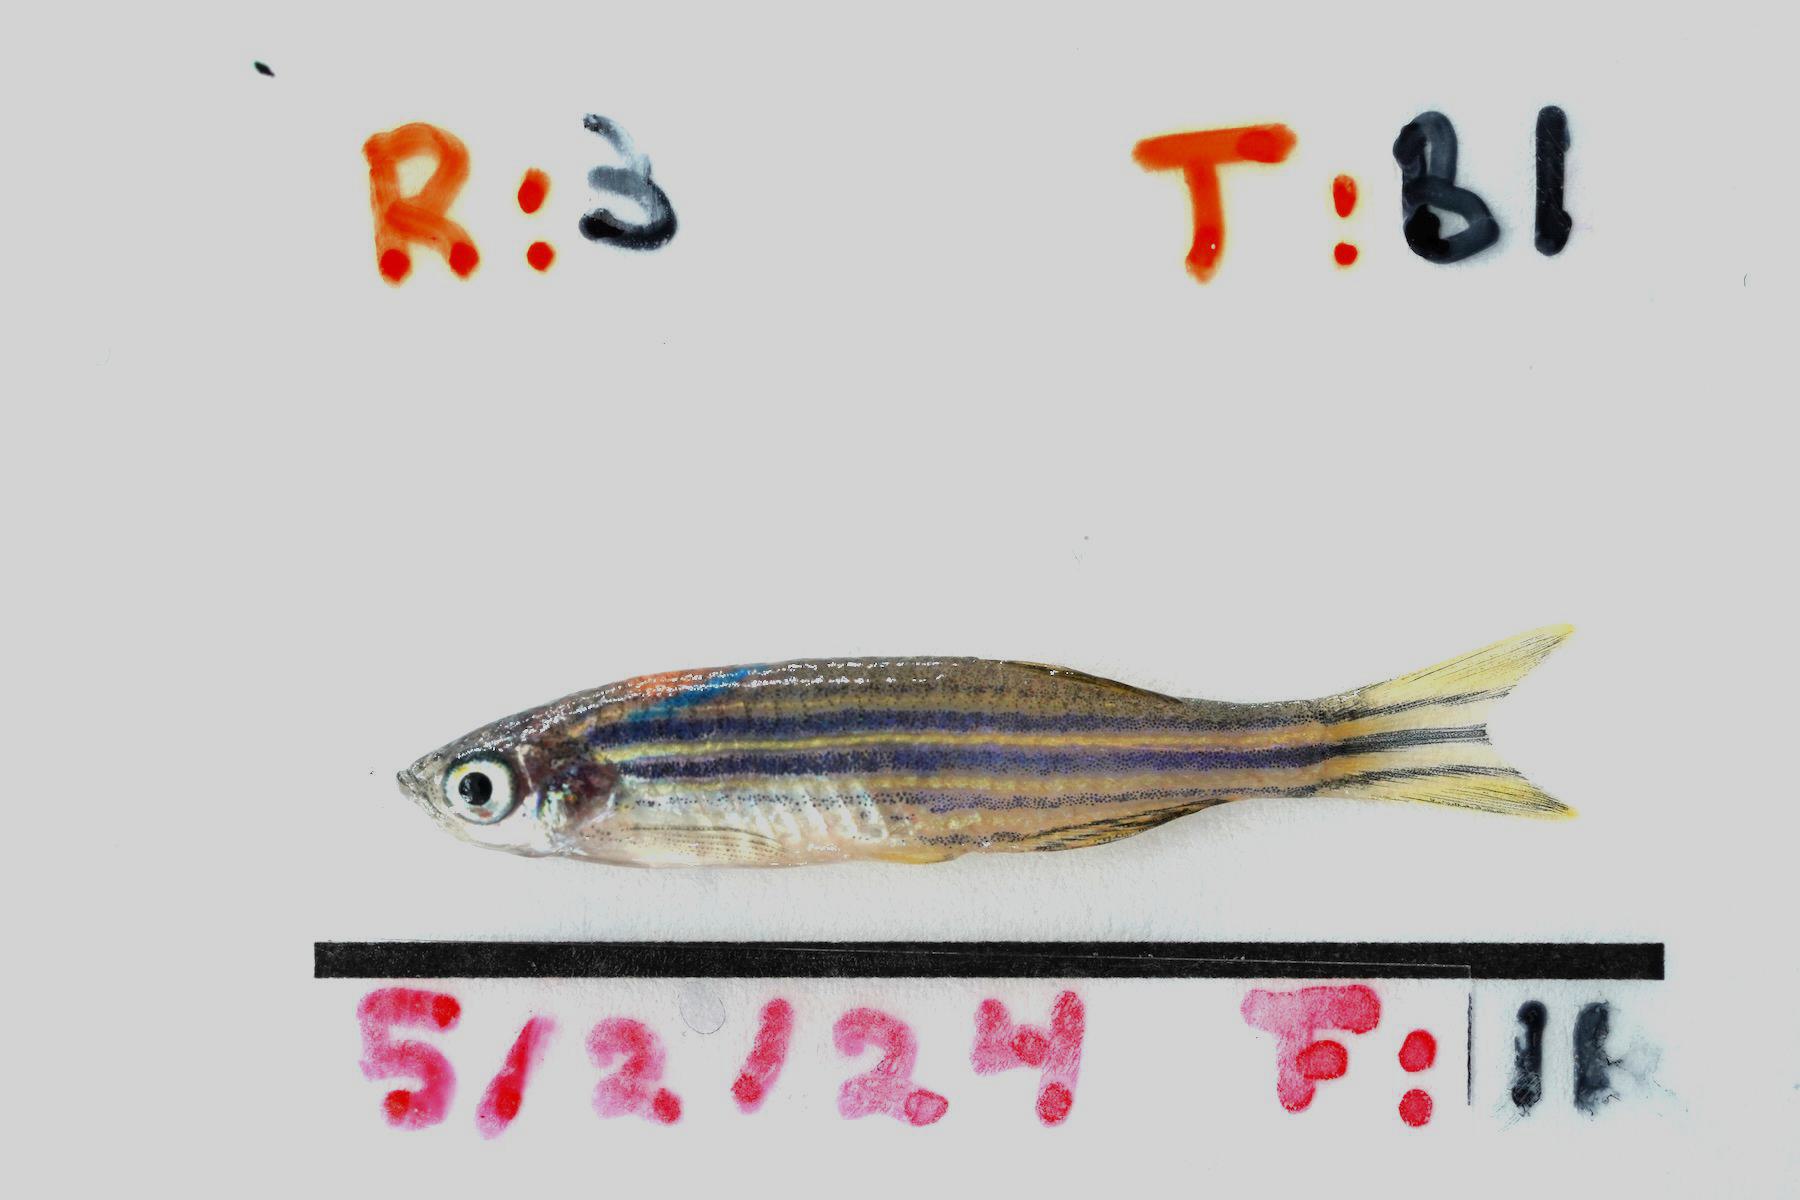 R:3 T:B1
5/2/24 F:11